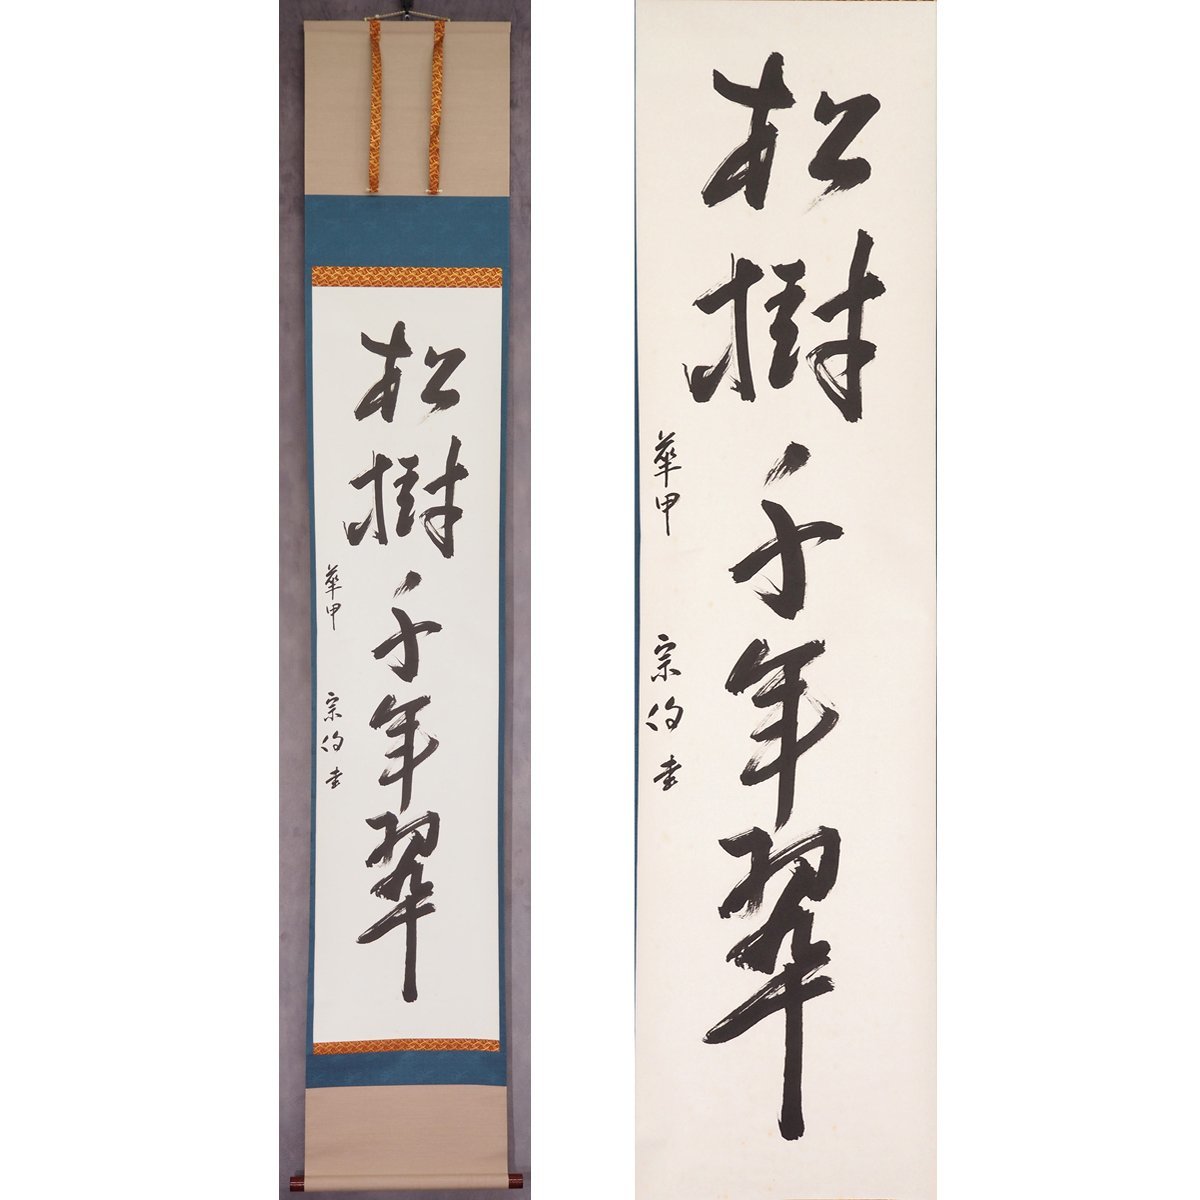 松樹千年翠
華甲 宗伯書
松樹千年翠
華甲 宗伯書